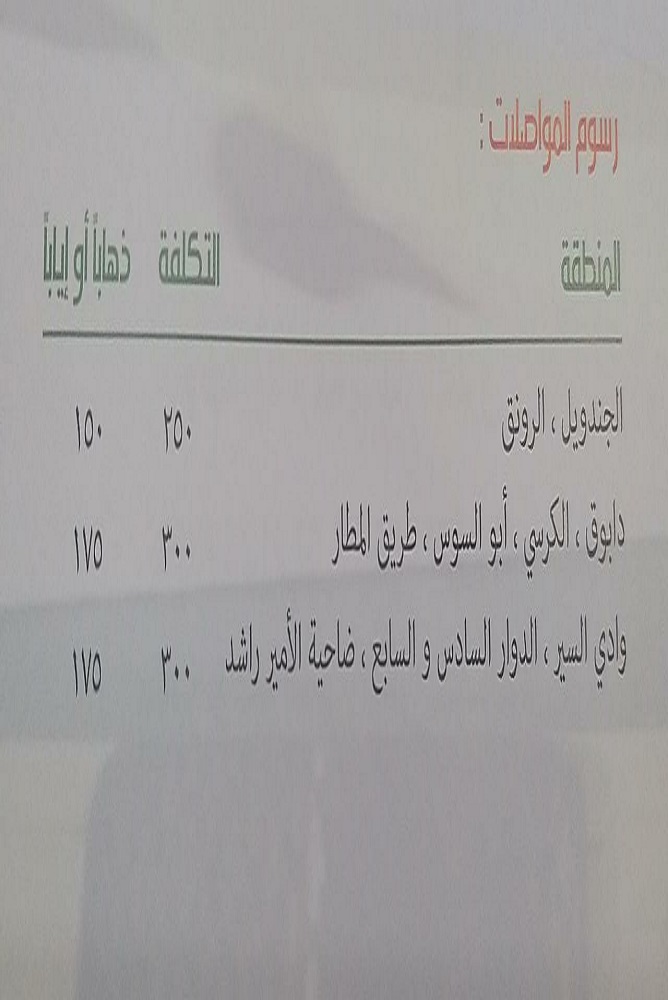 رسوم المواصلات :
المنطقة التكلفة ذهاباً أو إياباً
الجندويل ، الرونق ٢٥٠ ١٥٠
دابوق ، الكرسي ، أبو السوس ، طريق المطار ٣٠٠ ١٧٥
وادي السير ، الدوار السادس و السابع ، ضاحية الأمير راشد ٣٠٠ ١٧٥